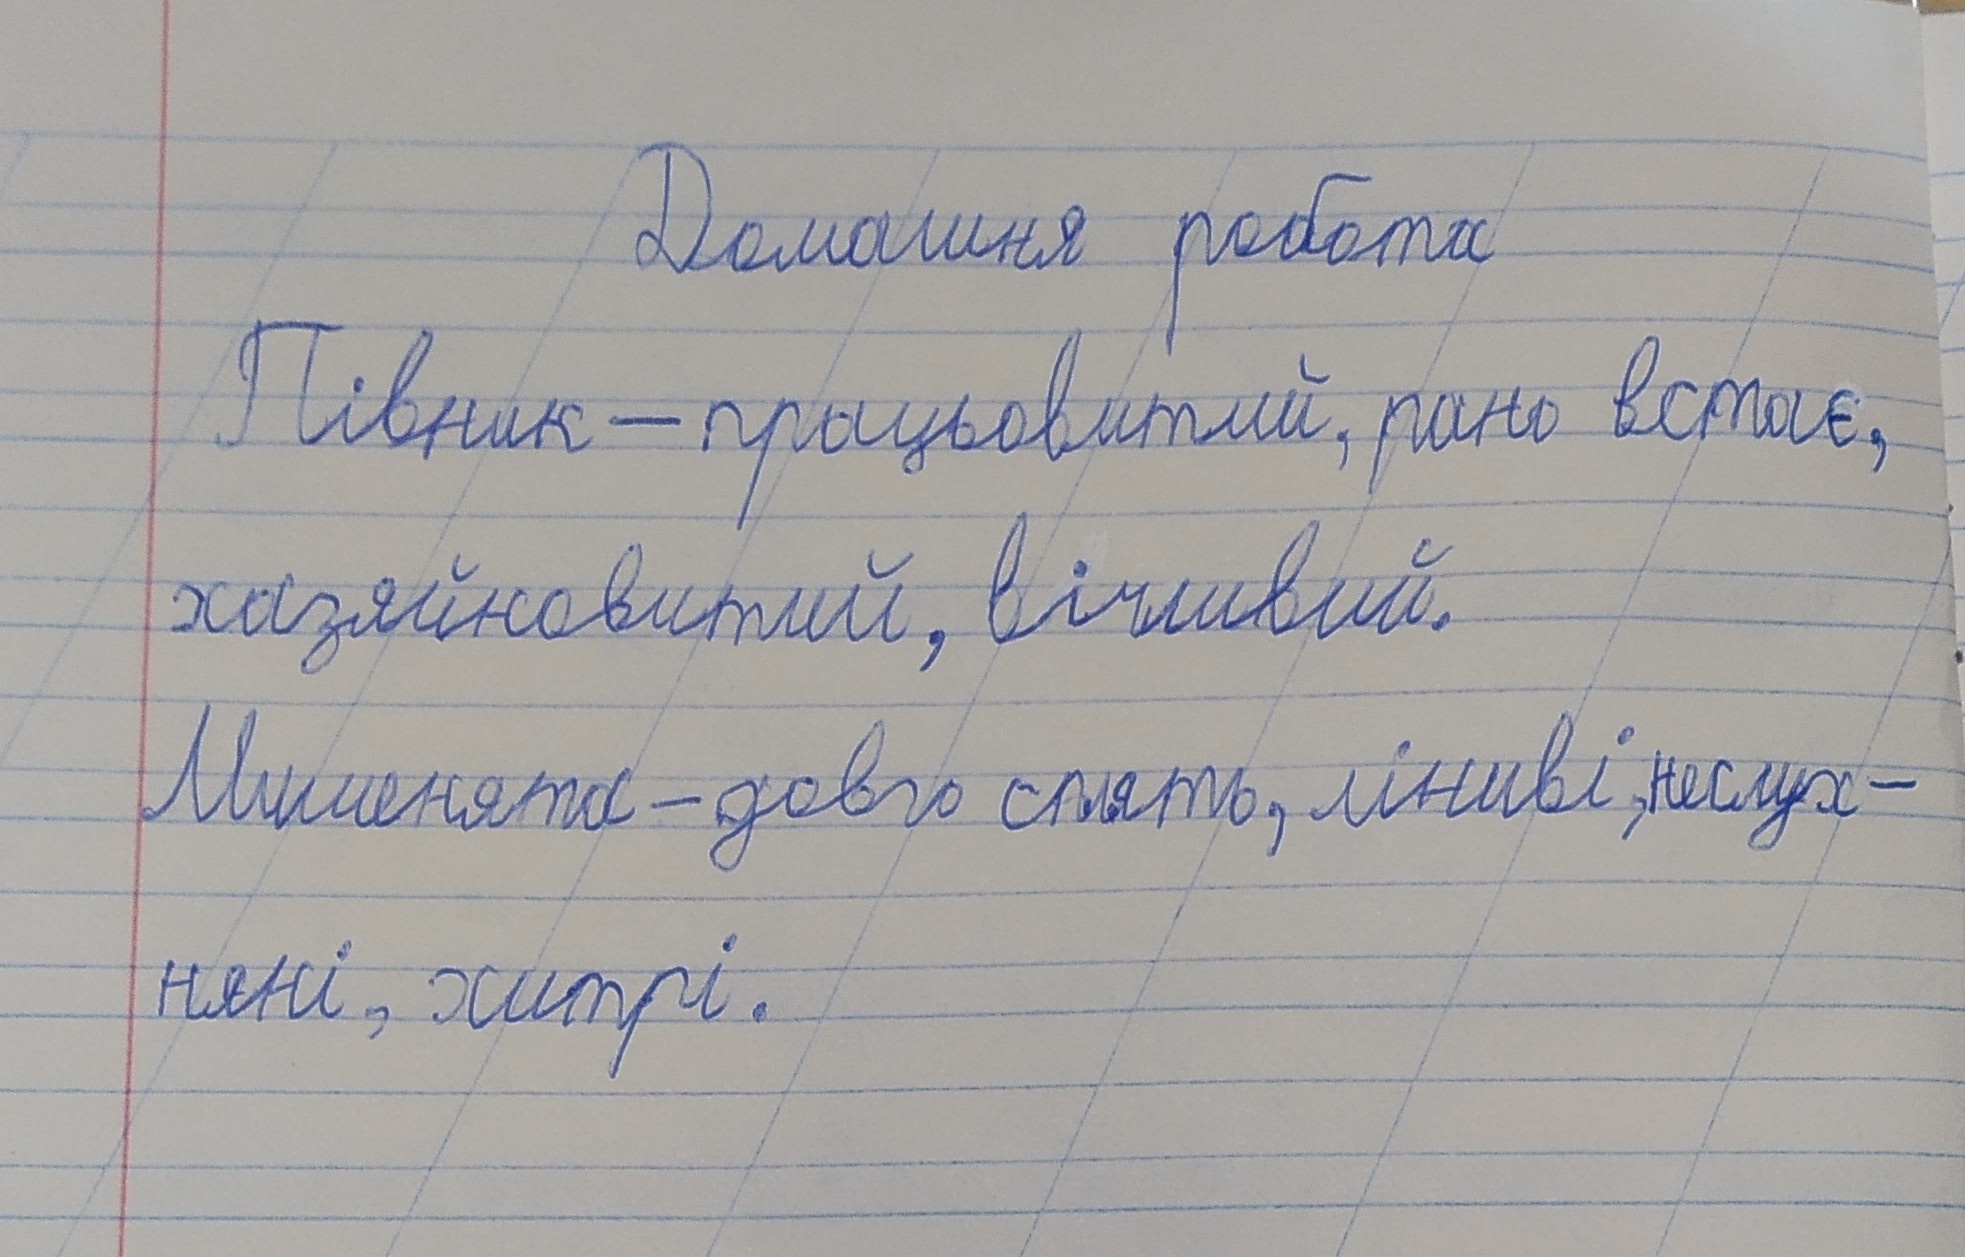 Домашня робота
Півник – працьовитий, рано встає,
хазяйновитий, вічливий.
Мишенята – довго сплять, ліниві, неслух-
няні, хитрі.